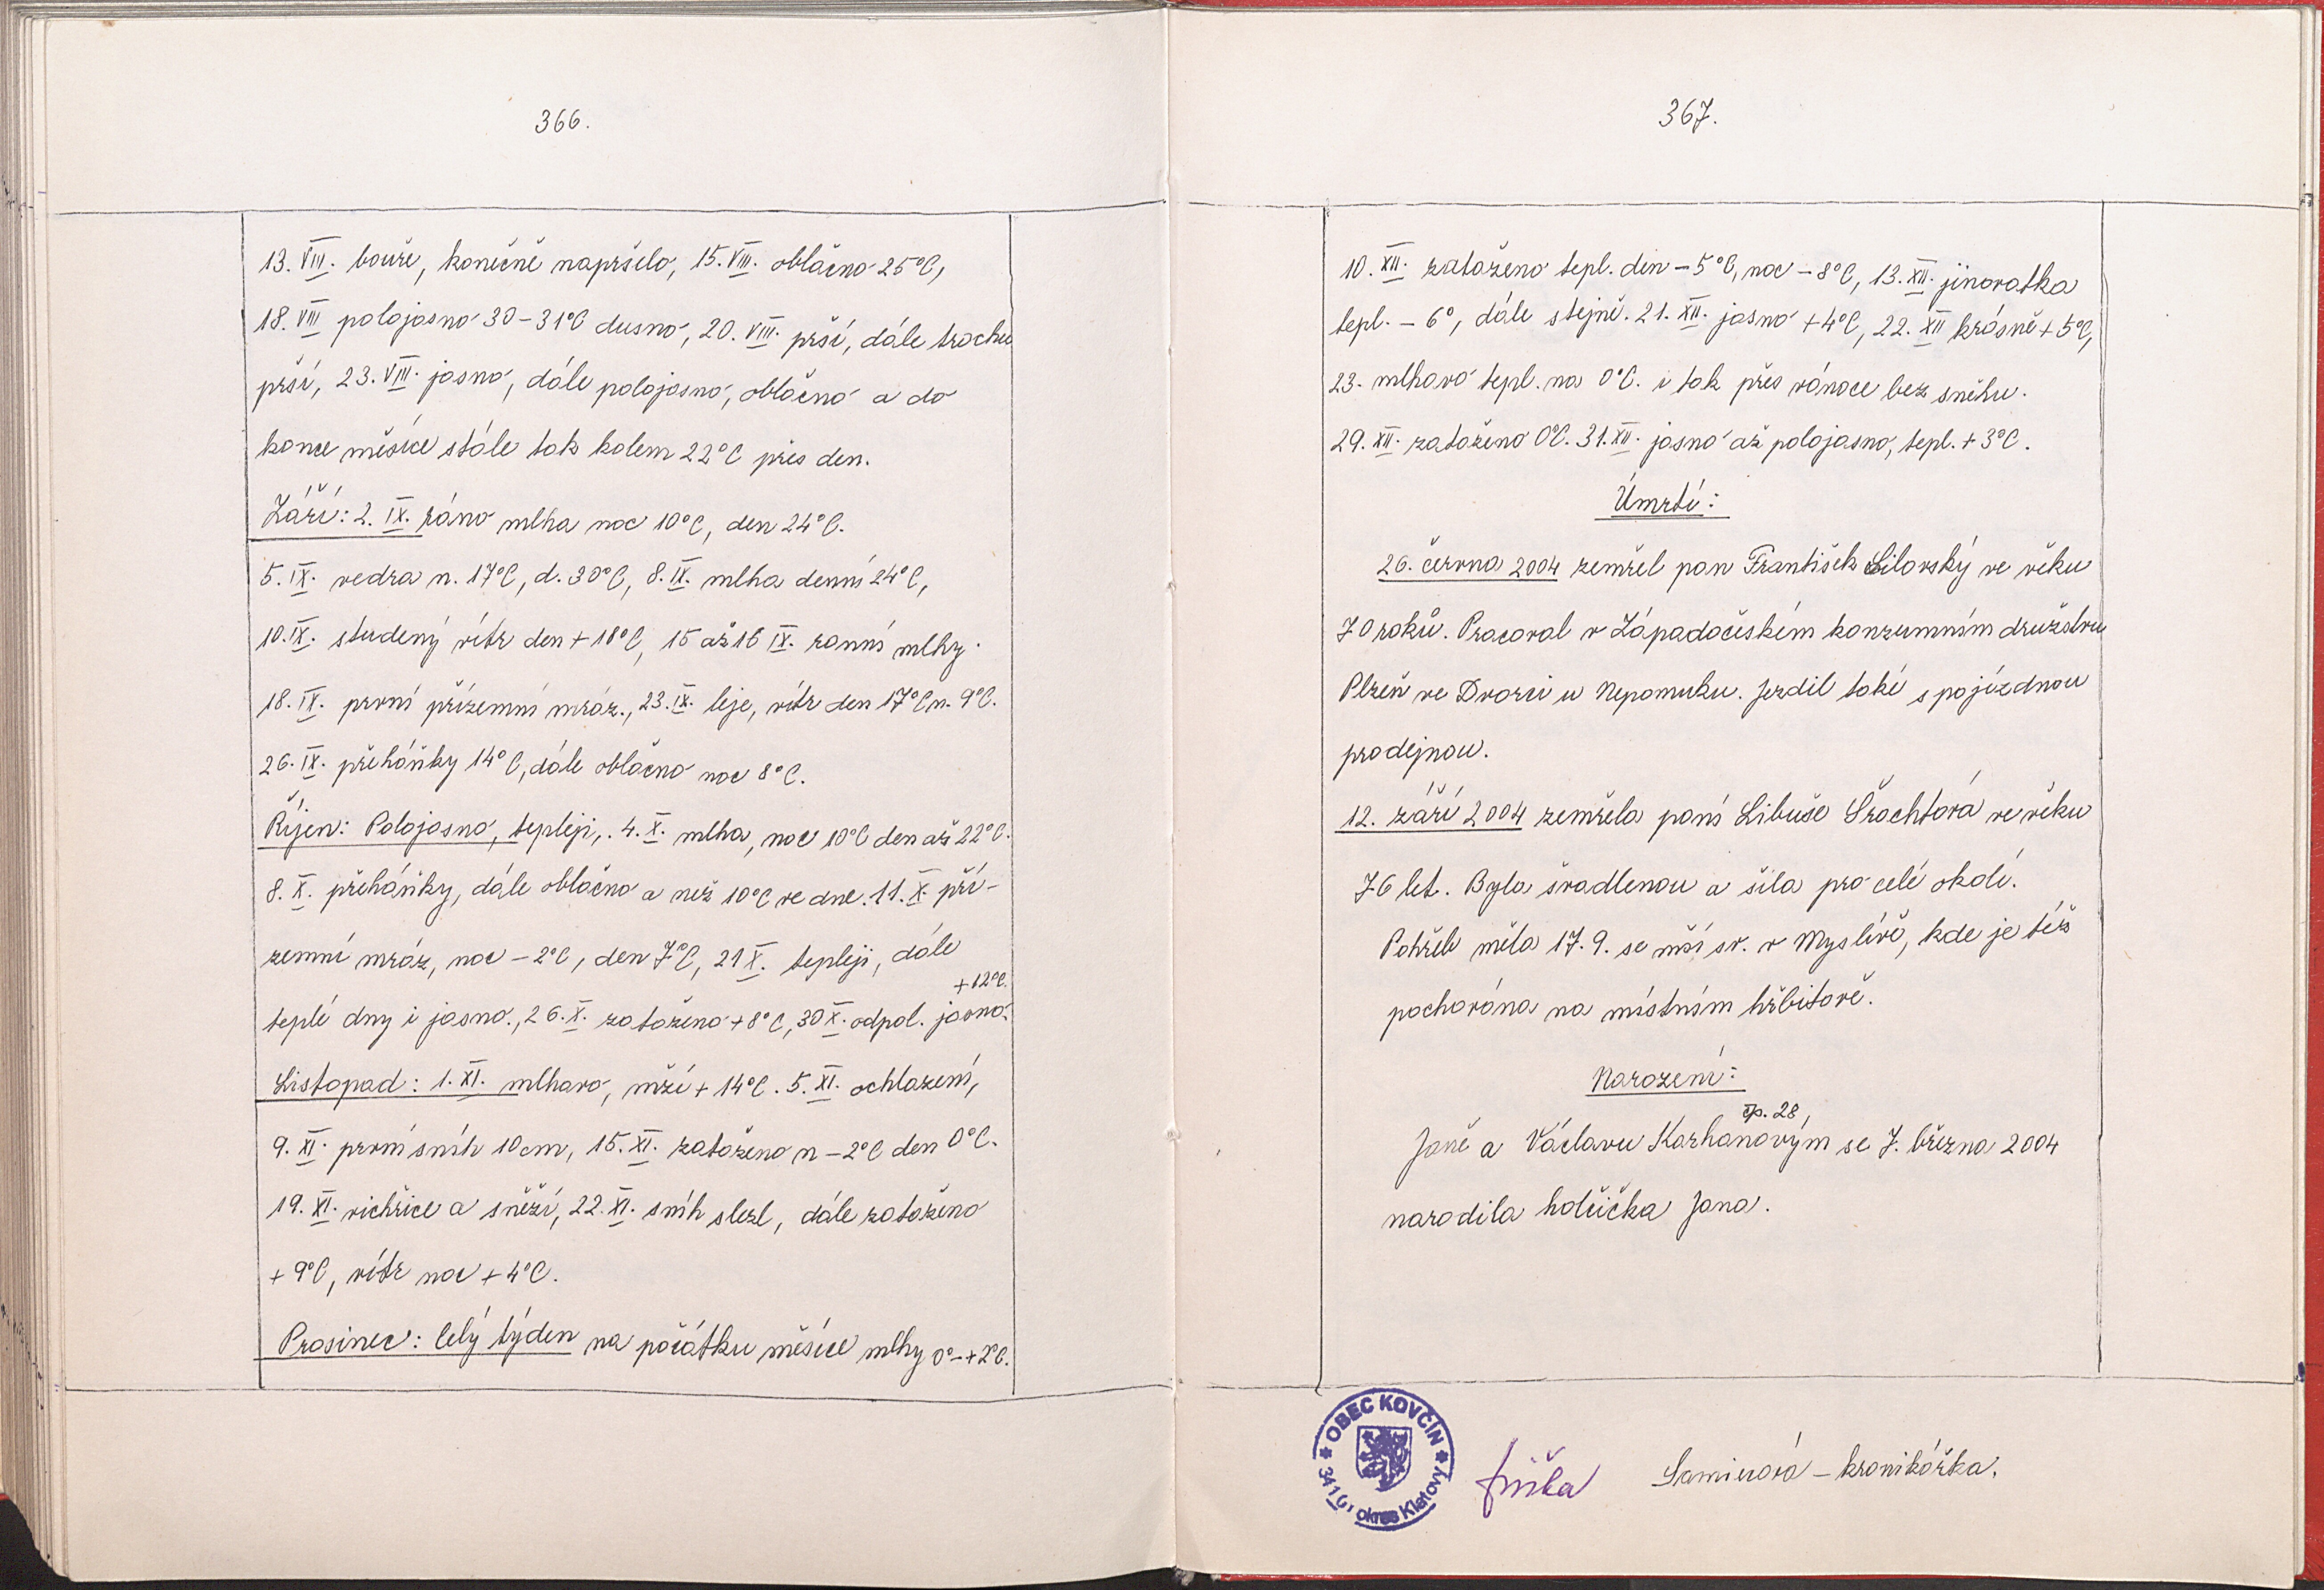 366.
13. VIII. bouře, konečně napršelo, 15. VIII. oblačno 25°C,
18. VIII polojasno 30-31°C dusno, 20. VIII. prší, dále trochu
prší, 23. VIII. jasno, dále polojasno, oblačno a do
konce měsíce stále tak kolem 22°C přes den.
Září: 2. IX. ráno mlha noc 10°C, den 24°C.
5. IX. vedra n. 17°C, d. 30°C, 8. IX. mlha denní 24°C,
10. IX. studený vítr den + 18°C, 15 až 16 IX. ranní mlhy.
18. IX. první přízemní mráz., 23. IX. leje, vítr den 17°C n. 9°C.
26. IX. přeháňky 14°C, dále oblačno noc 8°C.
Říjen: Polojasno, tepleji,. 4. X. mlha, noc 10°C den až 22°C.
8. X. přeháňky, dále oblačno a než 10°C ve dne. 11. X. pří-
zemní mráz, noc -2°C, den 7°C, 21 X. tepleji, dále
teplé dny i jasno., 26. X. zataženo +8°C, 30 X. odpol. jasno. +12°C.
Listopad: 1. XI. mlhavo, mží + 14°C. 5. XI. ochlazení,
9. XI. první sníh 10 cm, 15. XI. zataženo n -2°C den 0°C.
19. XI. vichřice a sněží, 22. XI. sníh slezl, dále zataženo
+ 9°C, vítr noc + 4°C.
Prosinec: Celý týden na počátku měsíce mlhy 0°-+2°C.
367.
10. XII. zataženo tepl. den -5°C, noc -8°C, 13. XII. jinovatka
tepl. - 6°, dále stejně. 21. XII. jasno +4°C, 22. XII krásně +5°C,
23. mlhavo tepl. na 0°C. i tak přes vánoce bez sněhu.
29. XII. zataženo 0°C. 31. XII. jasno až polojasno, tepl. + 3°C.
Úmrtí:
26. června 2004 zemřel pan František Silovský ve věku
70 roků. Pracoval v Západočeském konzumním družstvu
Plzeň ve Dvorci u Nepomuku. Jezdil také s pojízdnou
prodejnou.
12. září 2004 zemřela paní Libuše Šrachtová ve věku
76 let. Byla švadlenou a šila pro celé okolí.
Pohřeb měla 17. 9. se mší sv. v Myslívě, kde je též
pochována na místním hřbitově.
Narození:
čp. 28,
Janě a Václavu Karhanovým se 7. března 2004
narodila holčička Jana.
OBEC KOVČÍN
okres Klatovy
kronikářka.